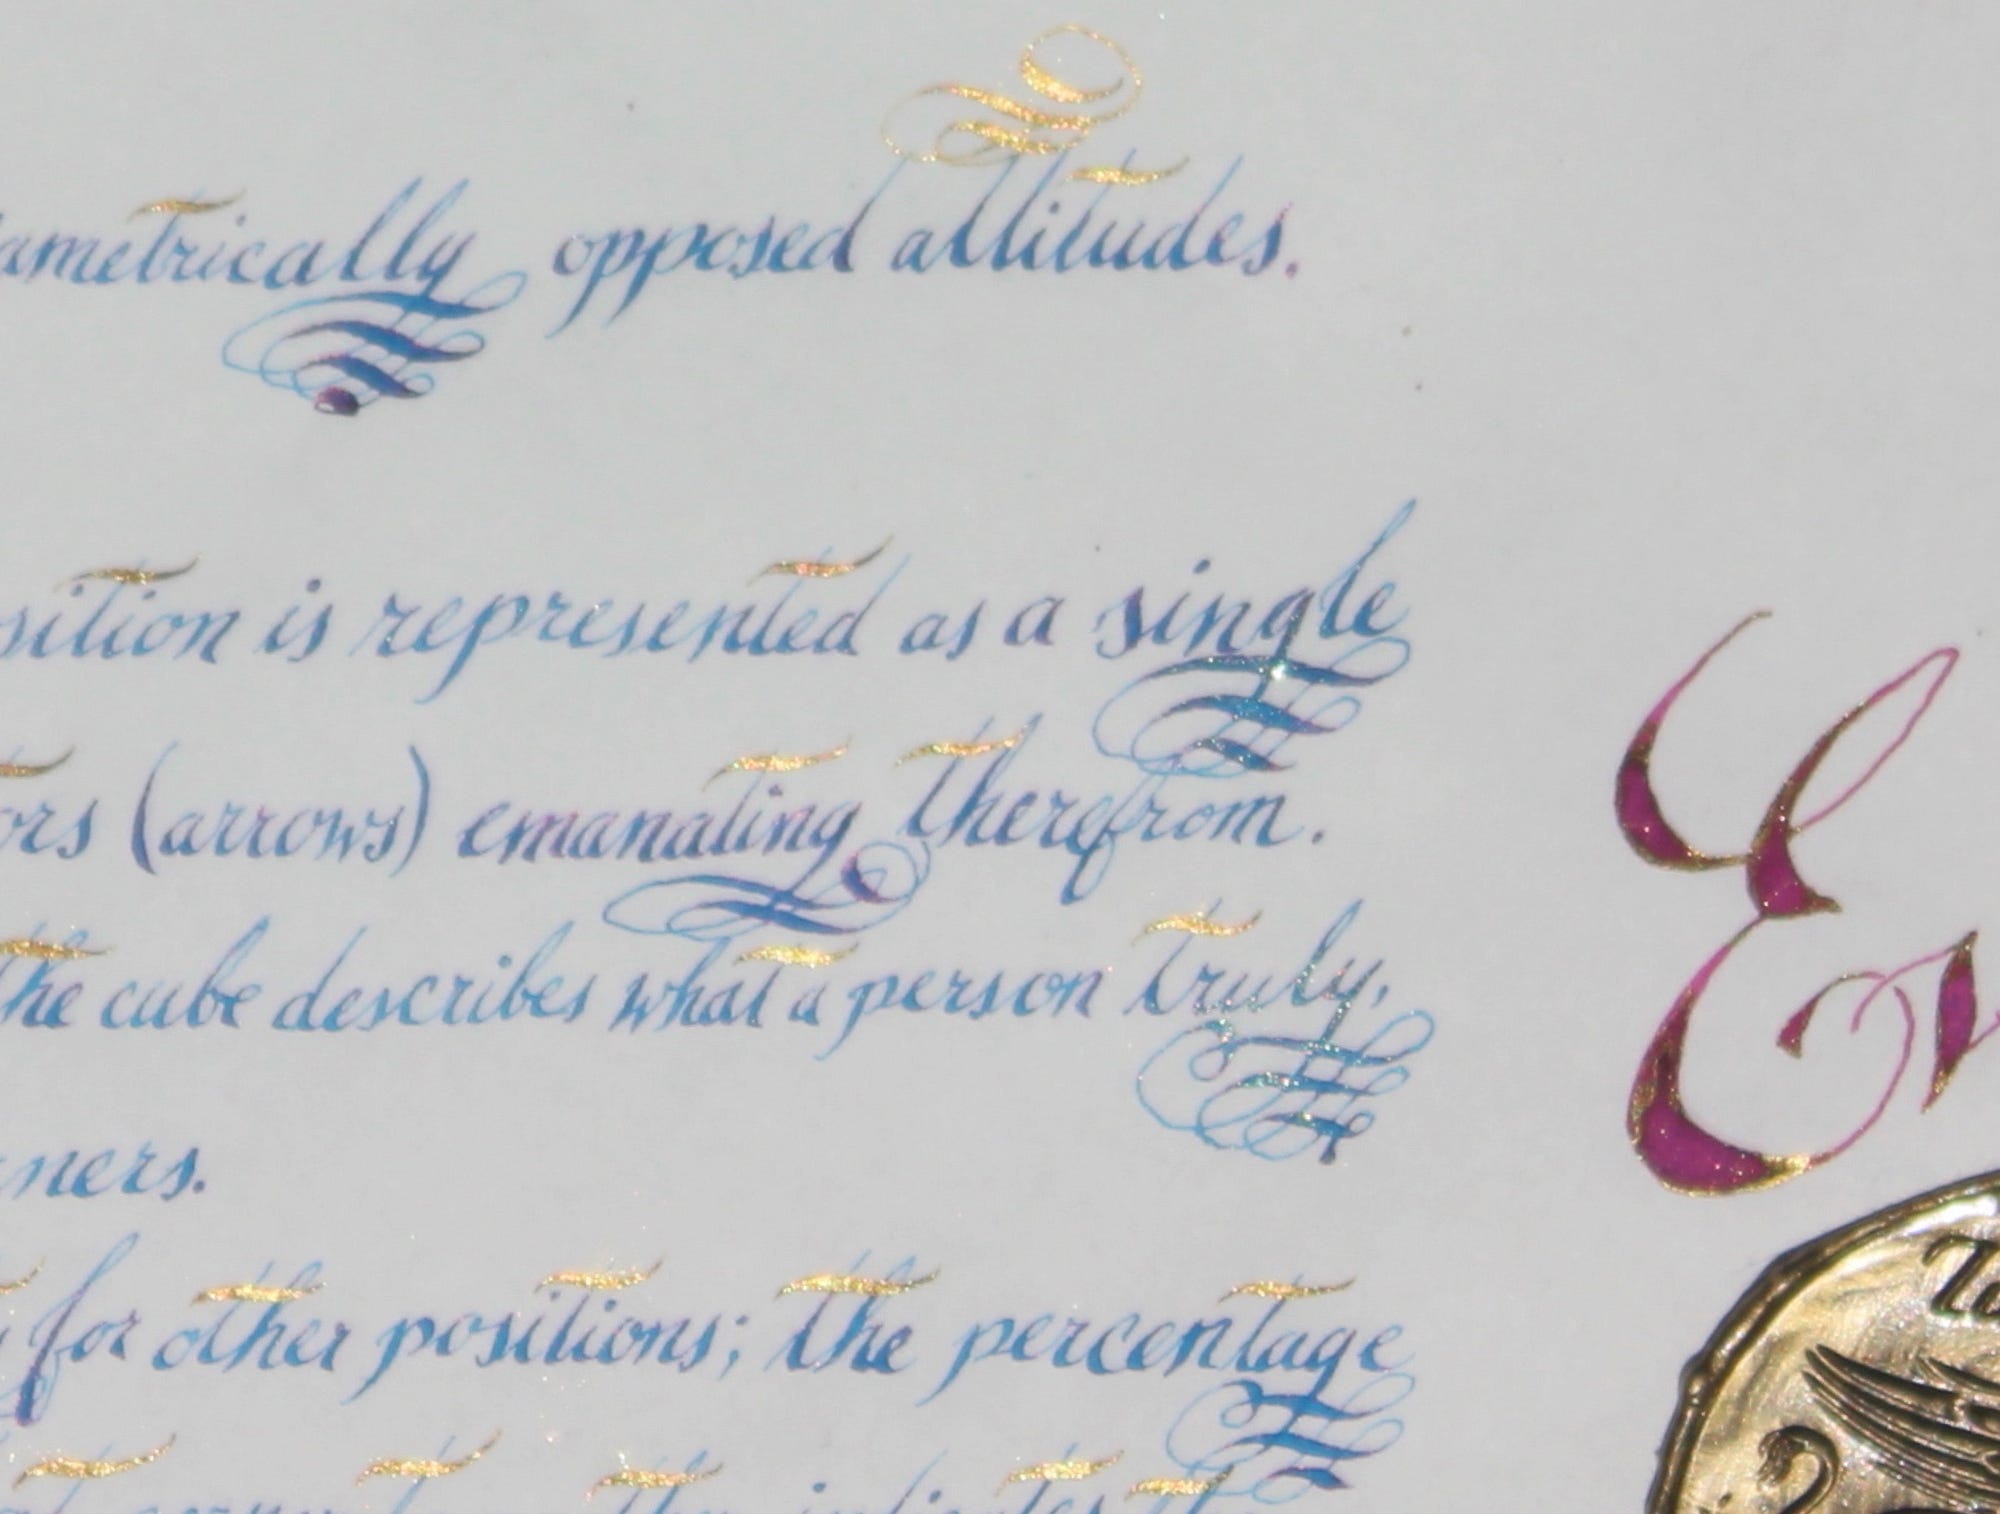 ametrically opposed attitudes.
sition is represented as a single
ors (arrows) emanating therefrom.
the cube describes what a person truly,
ners.
for other positions; the percentage
indicates